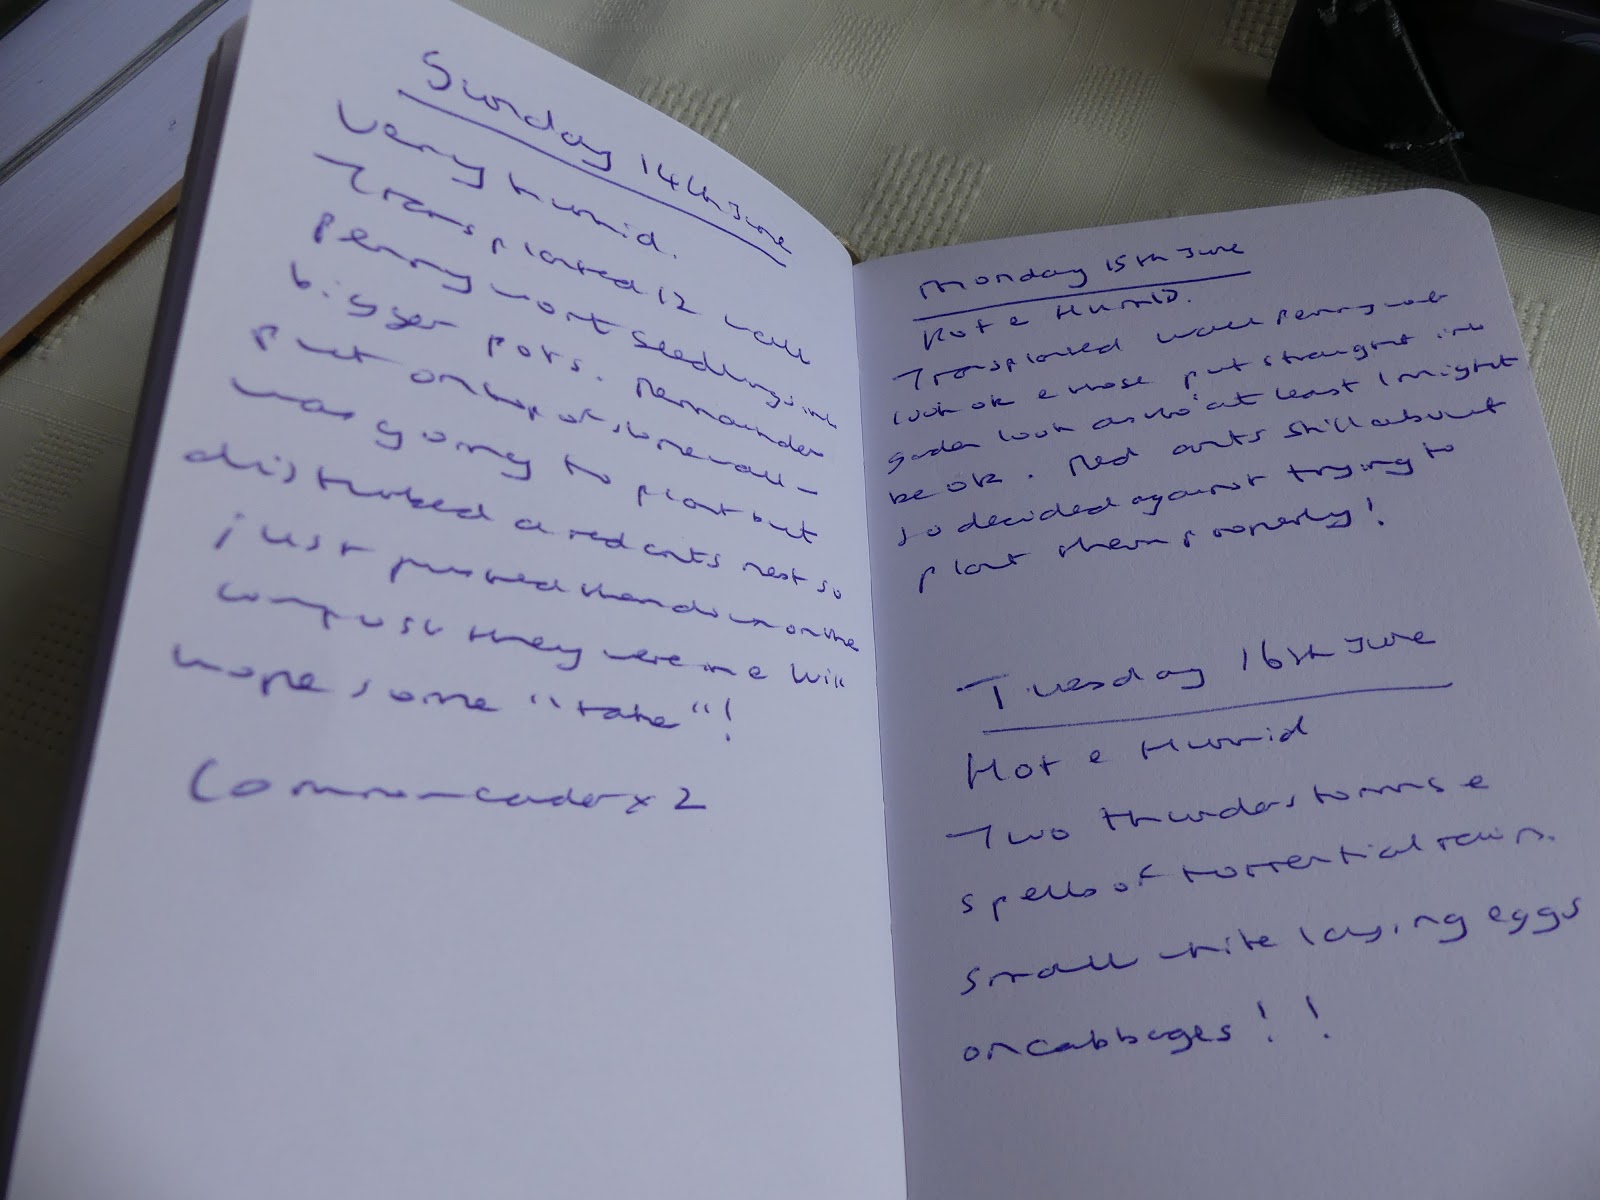 Sunday 14th June
Very Humid.
Transplanted 12 wall
pennywort seedlings into
bigger pots. Remainder
put on top of stone wall -
was going to plant but
disturbed a red ants nest so
just pushed them down on the
compost they were in & will
hope some "take"!
Common darter x 2
Monday 15th June
Hot & Humid.
Transplanted wall pennywort
look ok & those put straight into
garden look as tho' at least 1 might
be ok. Red ants still about
so decided against trying to
plant them properly!
Tuesday 16th June
Hot & Humid
Two thunderstorms &
spells of torrential rain.
Small white laying eggs
on cabbages! !